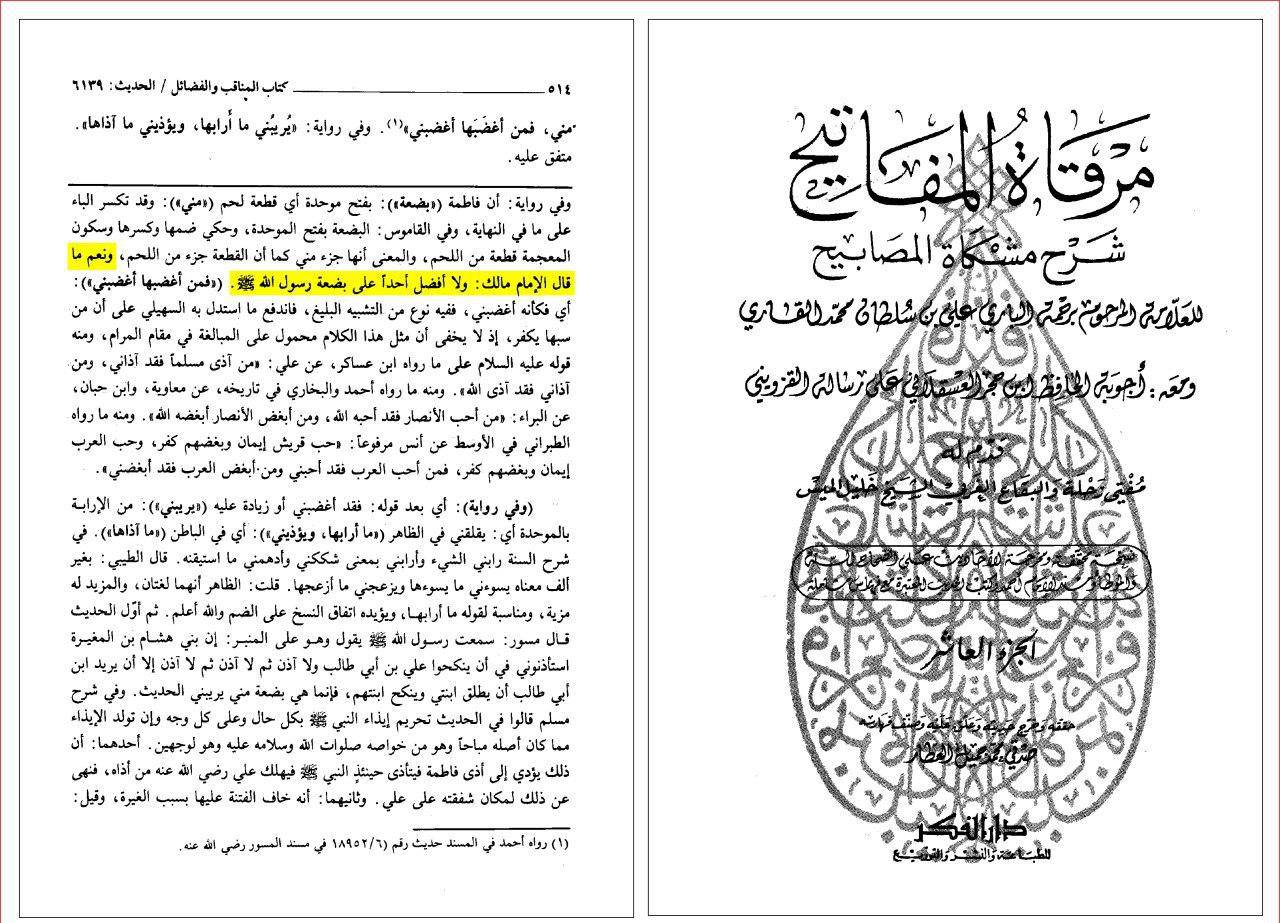 مرقاة المفاتيح
شرح مشكاة المصابيح
للعلامة المرحوم برحمة الباري علي بن سلطان محمد القاري
ومعه: أجوبة الحافظ ابن حجر العسقلاني على رسالة القزويني
قدم له
مفتي زحلة والبقاع الغربي الشيخ خليل الميس
الجزء العاشر
حققه وخرج حديثه وعلق عليه وصنف فهارسه
صدقي محمد جميل العطار
دار الفكر
للطباعة والنشر والتوزيع
٥١٤ كتاب المناقب والفضائل / الحديث: ٦١٣٩
مني، فمن أغضَبَها أغضبني»(١). وفي رواية: «يُريبُني ما أَرابها، ويؤذيني ما آذاها».
متفق عليه.
وفي رواية: أن فاطمة («بضعة»): بفتح موحدة أي قطعة لحم («مني»): وقد تكسر الباء
على ما في النهاية، وفي القاموس: البضعة بفتح الموحدة، وحكي ضمها وكسرها وسكون
المعجمة قطعة من اللحم، والمعنى أنها جزء مني كما أن القطعة جزء من اللحم، ونعم ما
قال الإمام مالك: ولا أفضل أحداً على بضعة رسول الله ﷺ. («فمن أغضبها أغضبني»):
أي فكأنه أغضبني، ففيه نوع من التشبيه البليغ، فاندفع ما استدل به السهيلي على أن من
سبها يكفر، إذ لا يخفى أن مثل هذا الكلام محمول على المبالغة في مقام المرام، ومنه
قوله عليه السلام على ما رواه ابن عساكر، عن علي: «من آذى مسلماً فقد آذاني، ومن
آذاني فقد آذى الله». ومنه ما رواه أحمد والبخاري في تاريخه، عن معاوية، وابن حبان،
عن البراء: «من أحب الأنصار فقد أحبه الله، ومن أبغض الأنصار أبغضه الله». ومنه ما رواه
الطبراني في الأوسط عن أنس مرفوعاً: «حب قريش إيمان وبغضهم كفر، وحب العرب
إيمان وبغضهم كفر، فمن أحب العرب فقد أحبني ومن أبغض العرب فقد أبغضني».
(وفي رواية): أي بعد قوله: فقد أغضبني أو زيادة عليه («يريبني»): من الإرابة
بالموحدة أي: يقلقني في الظاهر («ما أرابها، ويؤذيني»): أي في الباطن («ما آذاها»). في
شرح السنة رابني الشيء وأرابني بمعنى شككني وأدهمني ما استيقنه. قال الطيبي: بغير
ألف معناه يسوءني ما يسوءها ويزعجني ما أزعجها. قلت: الظاهر أنهما لغتان، والمزيد له
مزية، ومناسبة لقوله ما أرابها، ويؤيده اتفاق النسخ على الضم والله أعلم. ثم أوّل الحديث
قال مسور: سمعت رسول الله ﷺ يقول وهو على المنبر: إن بني هشام بن المغيرة
استأذنوني في أن ينكحوا علي بن أبي طالب ولا آذن ثم لا آذن ثم لا آذن إلا أن يريد ابن
أبي طالب أن يطلق ابنتي وينكح ابنتهم، فإنما هي بضعة مني يريبني الحديث. وفي شرح
مسلم قالوا في الحديث تحريم إيذاء النبي ﷺ بكل حال وعلى كل وجه وإن تولد الإيذاء
مما كان أصله مباحاً وهو من خواصه صلوات الله وسلامه عليه وهو لوجهين. أحدهما: أن
ذلك يؤدي إلى أذى فاطمة فيتأذى حينئذٍ النبي ﷺ فيهلك علي رضي الله عنه من أذاه، فنهى
عن ذلك لمكان شفقته على علي. وثانيهما: أنه خاف الفتنة عليها بسبب الغيرة، وقيل:
(١) رواه أحمد في المسند حديث رقم (١٨٩٥٢/٦ في مسند المسور رضي الله عنه.